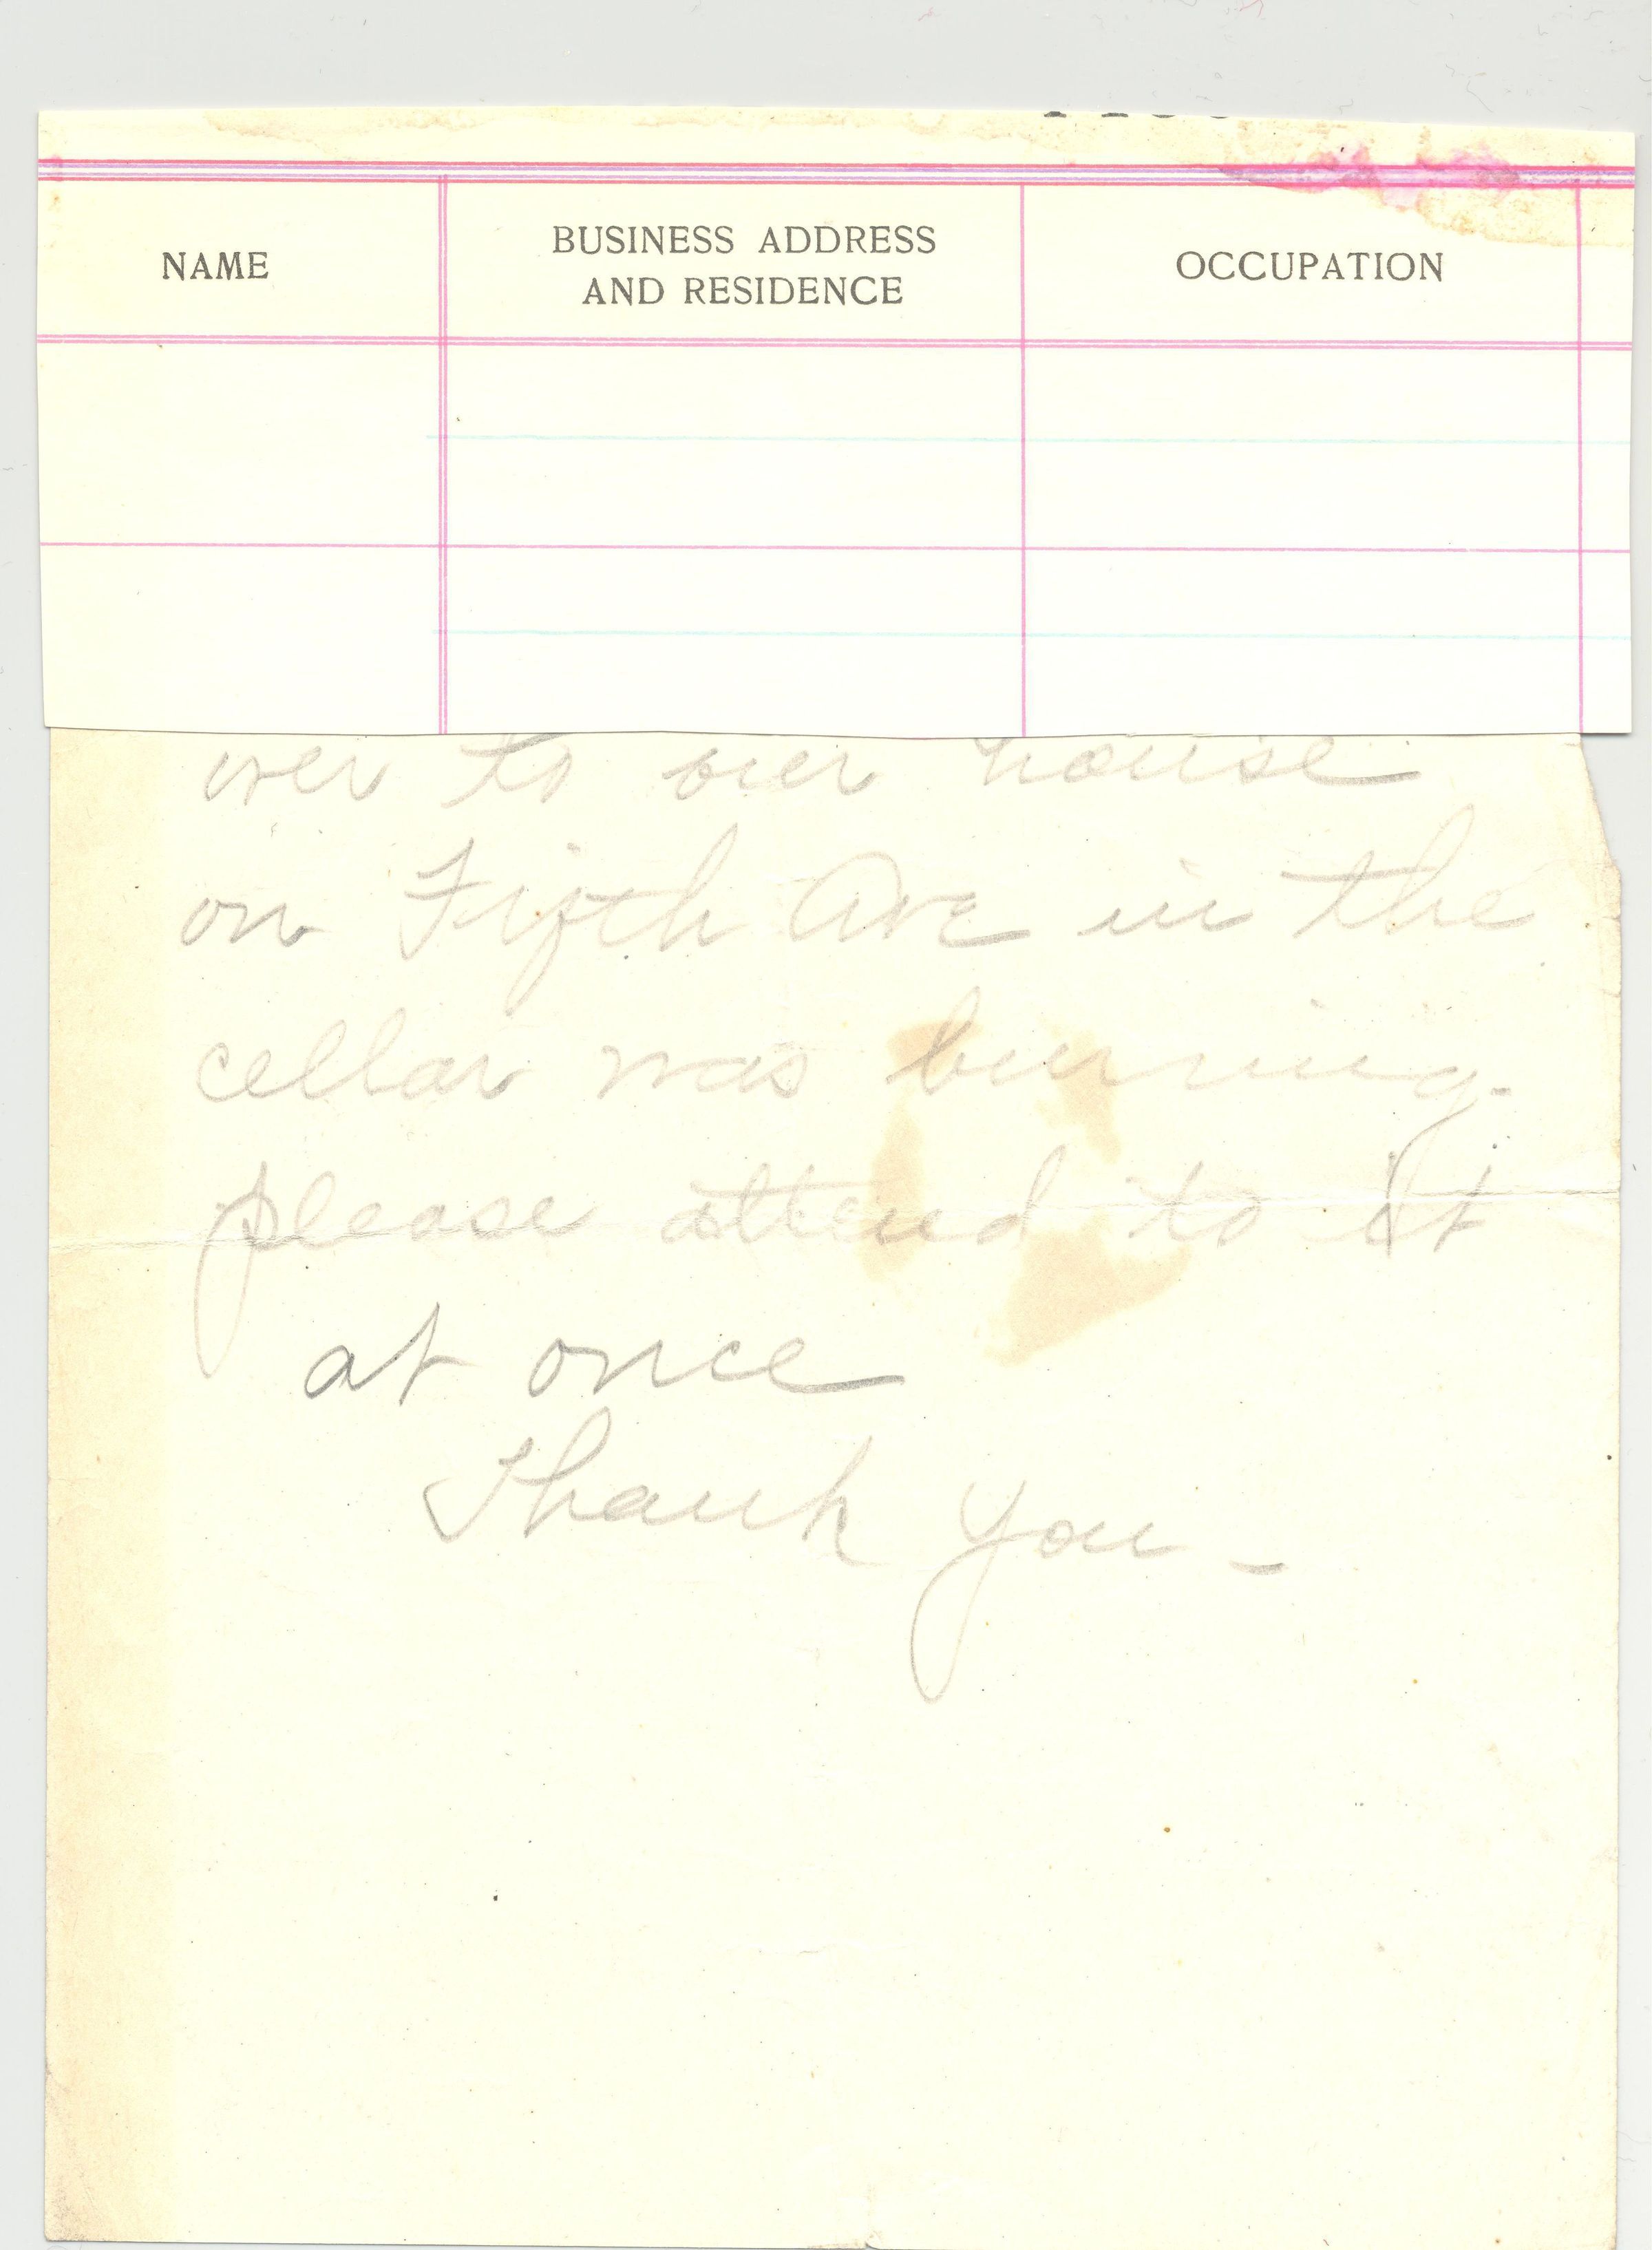 NAME
BUSINESS ADDRESS
AND RESIDENCE
OCCUPATION
over to our house
on Fifth Ave in the
cellar was burning.
please attend to it
at once
Thank you -